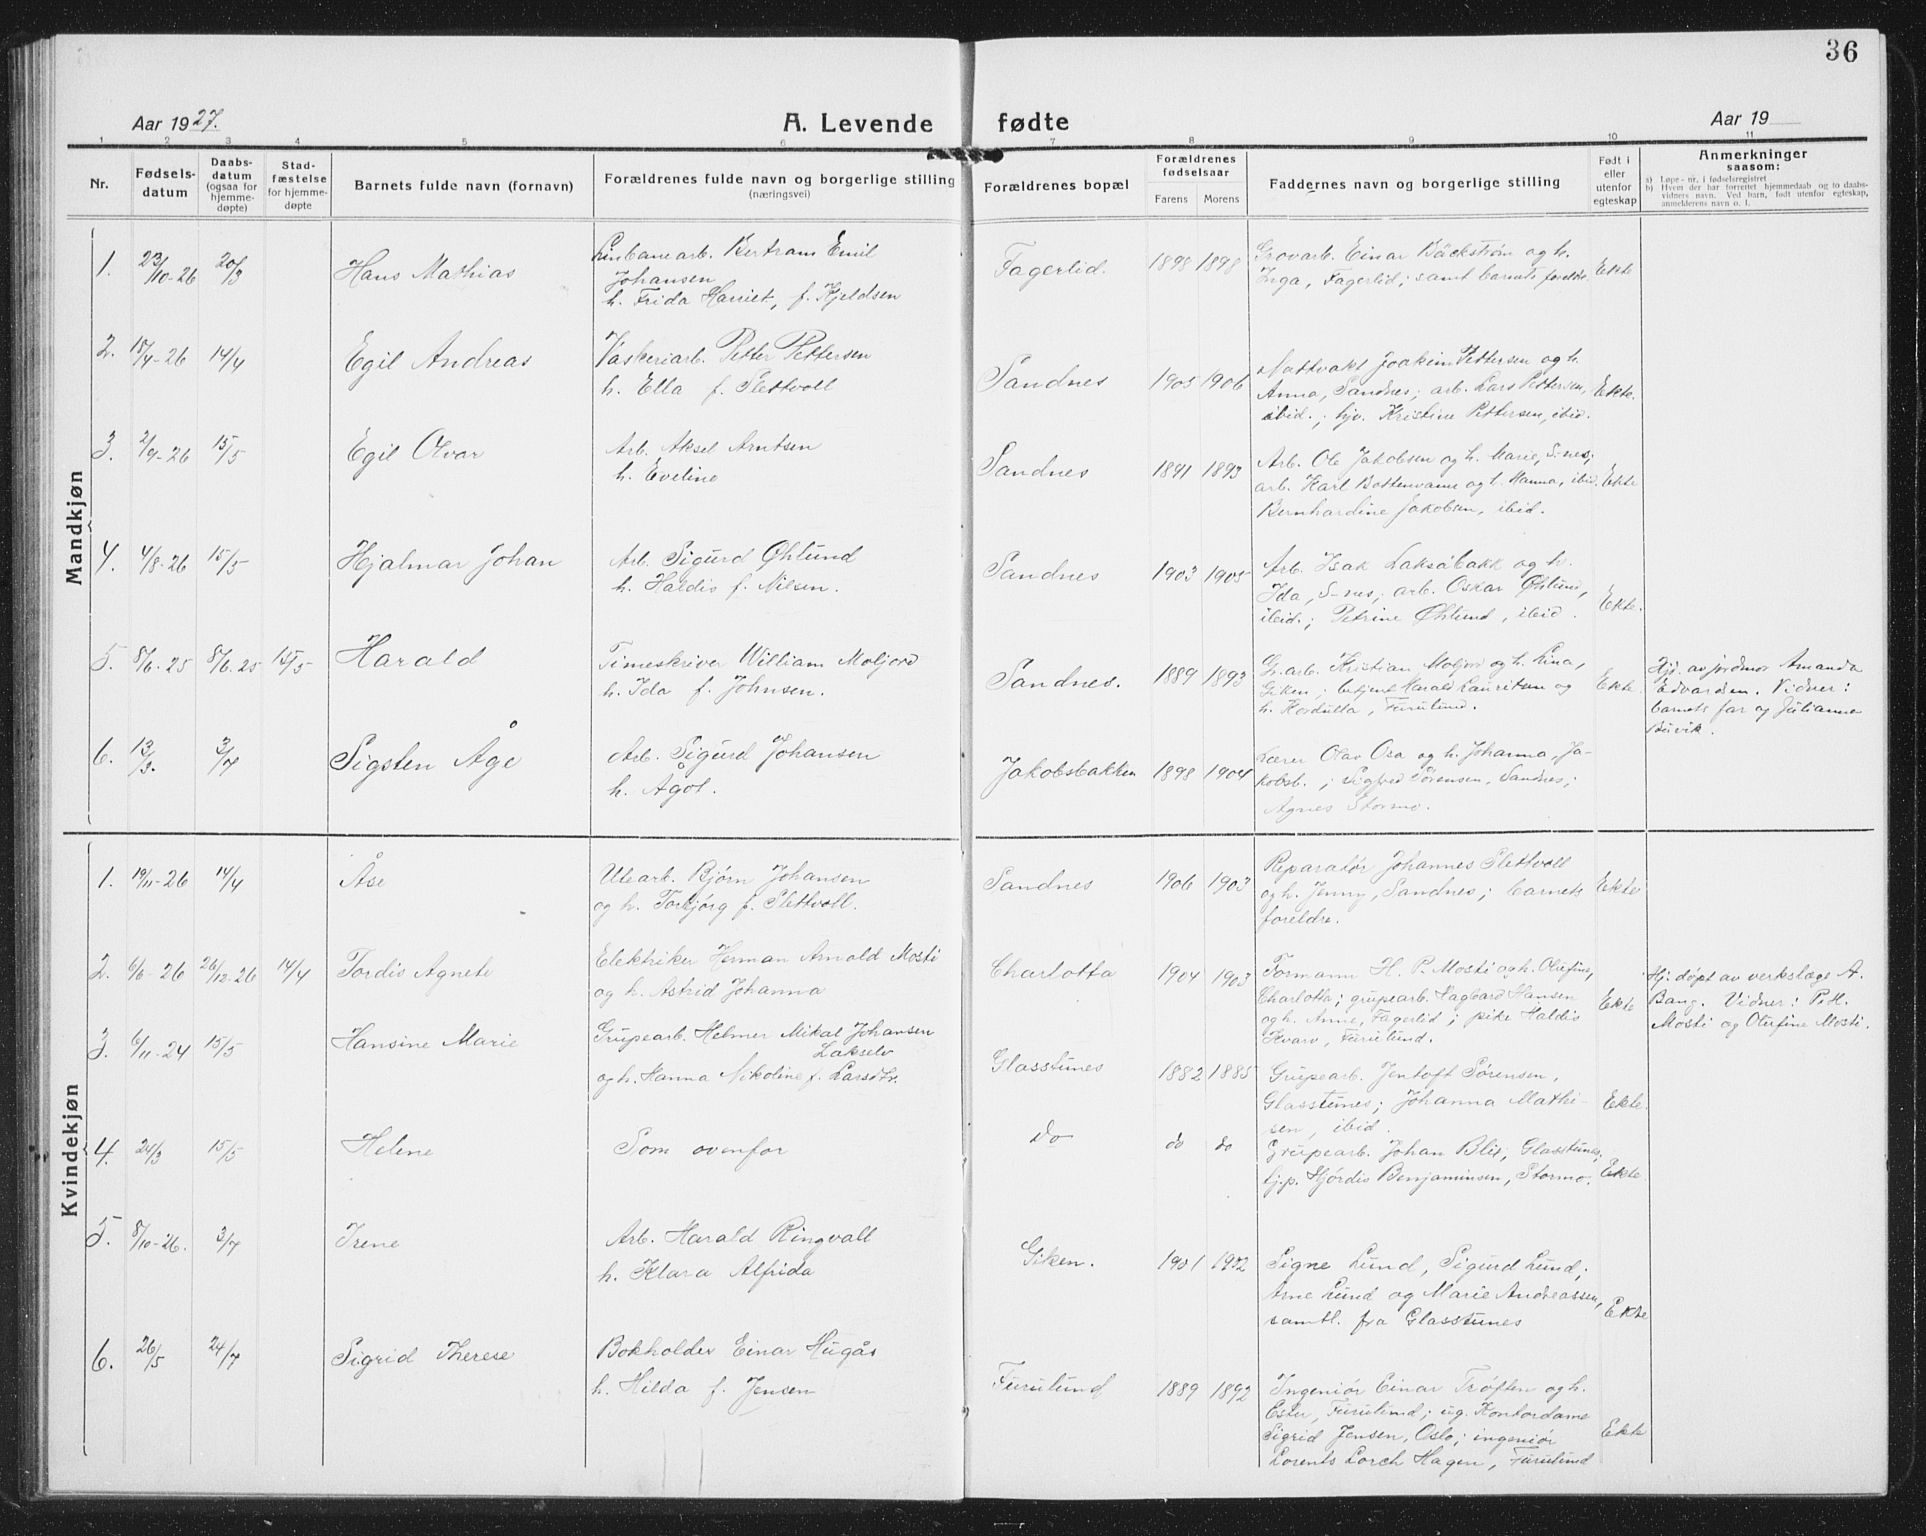 36
Aar 1927.
A. Levende fødte
Aar 19
1 2 3 4 5 6 7 8 9 10 11
Nr.
Fødsels-
datum
Daabs-
datum
(ogsaa for
hjemme-
døpte)
Stad-
fæstelse
for hjemme-
døpte
Barnets fulde navn (fornavn)
Forældrenes fulde navn og borgerlige stilling
(næringsvei)
Forældrenes bopæl
Forældrenes
fødselsaar
Farens Morens
Faddernes navn og borgerlige stilling
Født i
eller
utenfor
egteskap
Anmerkninger
saasom:
a) Løpe-nr. i fødselsregistret
b) Hvem der har forrettet hjemmedaab og to daabs-
vidners navn. Ved barn, født utenfor egteskap,
anmelderens navn o. l.
Mandkjøn
1. 23/10-26 20/3 Hans Mathias
Linbanearb. Bertram Emil
Johansen
h. Frida Harriet, f. Kjeldsen
Fagerlid. 1898 1898
Grovarb. Einar Bäckstrøm og h.
Inga, Fagerlid; samt barnets foreldre.
Ekte
2. 15/4-26 14/4 Egil Andreas
Vaskeriarb. Petter Pettersen
h. Ella f. Slettvoll
Sandnes 1905 1906
Nattvakt Joakim Pettersen og h.
Anna, Sandnes; arb. Lars Pettersen,
ibid.; hjv. Kristine Pettersen, ibid.
Ekte.
3. 2/9-26 15/5 Egil Olvar
Arb. Aksel Arntsen
h. Eveline
Sandnes 1891 1893
Arb. Ole Jakobsen og h. Marie, S-nes;
arb. Karl Bottenvann og h. Hanna, ibid.
Bernhardine Jakobsen, ibid.
Ekte
4. 4/8-26 15/5 Hjalmar Johan
Arb. Sigurd Øhlund
h. Haldis f. Nilsen.
Sandnes 1903 1905
Arb. Isak Laksåbakk og h.
Ida, S-nes; arb. Oskar Øhlund,
ibid.; Petrine Øhlund, ibid.
Ekte.
5. 8/6-25 8/6.25 15/5 Harald
Timeskriver William Moljord
h. Ida f. Johnsen.
Sandnes. 1889 1893
Gr.arb. Kristian Moljord og h. Lina,
Giken; betjent Harald Lauritsen og
h. Kordulla, Furulund.
Ekte.
Hj. av jordmor Amanda
Edvardsen. Vidner:
barnets far og Julianna
Buvik.
6. 13/3. 3/7 Sigsten Åge
Arb. Sigurd Johansen
h. Ågot.
Jakobsbakken 1898 1904
Lærer Olav Osa og h. Johanna, Ja-
kobsb.; Sigfred Sørensen, Sandnes;
Agnes Stormo.
Kvindekjøn
1. 19/11-26 14/4 Åse
Utearb. Bjørn Johansen
og h. Torbjørg f. Slettvoll.
Sandnes 1906 1903
Reparatør Johannes Slettvoll
og h. Jenny, Sandnes; barnets
foreldre.
Ekte
2. 6/6-26 26/12-26 14/4 Tordis Agnete
Elektriker Herman Arnold Mosti
og h. Astrid Johanna
Charlotta 1904 1903
Formann H. P. Mosti og h. Olufine,
Charlotta; grupearb. Hagbard Hansen
og h. Anne, Fagerlid; pike Haldis
Kvarv, Furulund.
Ekte
Hj. døpt av verkslæge A.
Bang. Vidner: P. H.
Mosti og Olufine Mosti.
3. 6/11-24 15/5 Hansine Marie
Grupearb. Helmer Mikal Johansen
Lakselv
og h. Hanna Nikoline f. Larsdtr.
Glasstunes 1882 1885
Grupearb. Jentoft Sørensen,
Glasstunes; Johanna Mathi-
sen, ibid.
Ekte.
4. 24/3 15/5 Helene
Som ovenfor
do do do
Grupearb. Johan Blix, Glasstunes,
tj.p. Hjørdis Benjaminsen, Stormo.
Ekte
5. 8/10-26. 3/7 Irene
Arb. Harald Ringvall
h. Klara Alfrida
Giken. 1901 1902
Signe Lund, Sigurd Lund;
Arne Lund og Marie Andreassen,
samtl. fra Glasstunes
Ekte
6. 26/5 24/7 Sigrid Therese
Bokholder Einar Hugås
h. Hilda f. Jensen
Furulund 1889 1892
Ingeniør Einar Trøften og h.
Ester, Furulund; ug. Kontordame
Sigrid Jensen, Oslo; ingeniør
Lorents Lorch Hagen, Furulund
Ekte